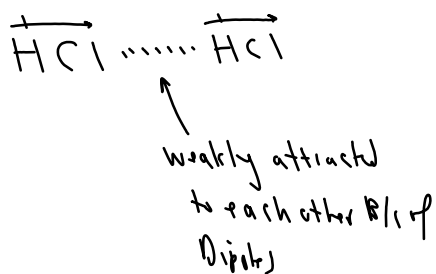 HCl ....... HCl
weakly attracted
to each other B/c of
Dipoles